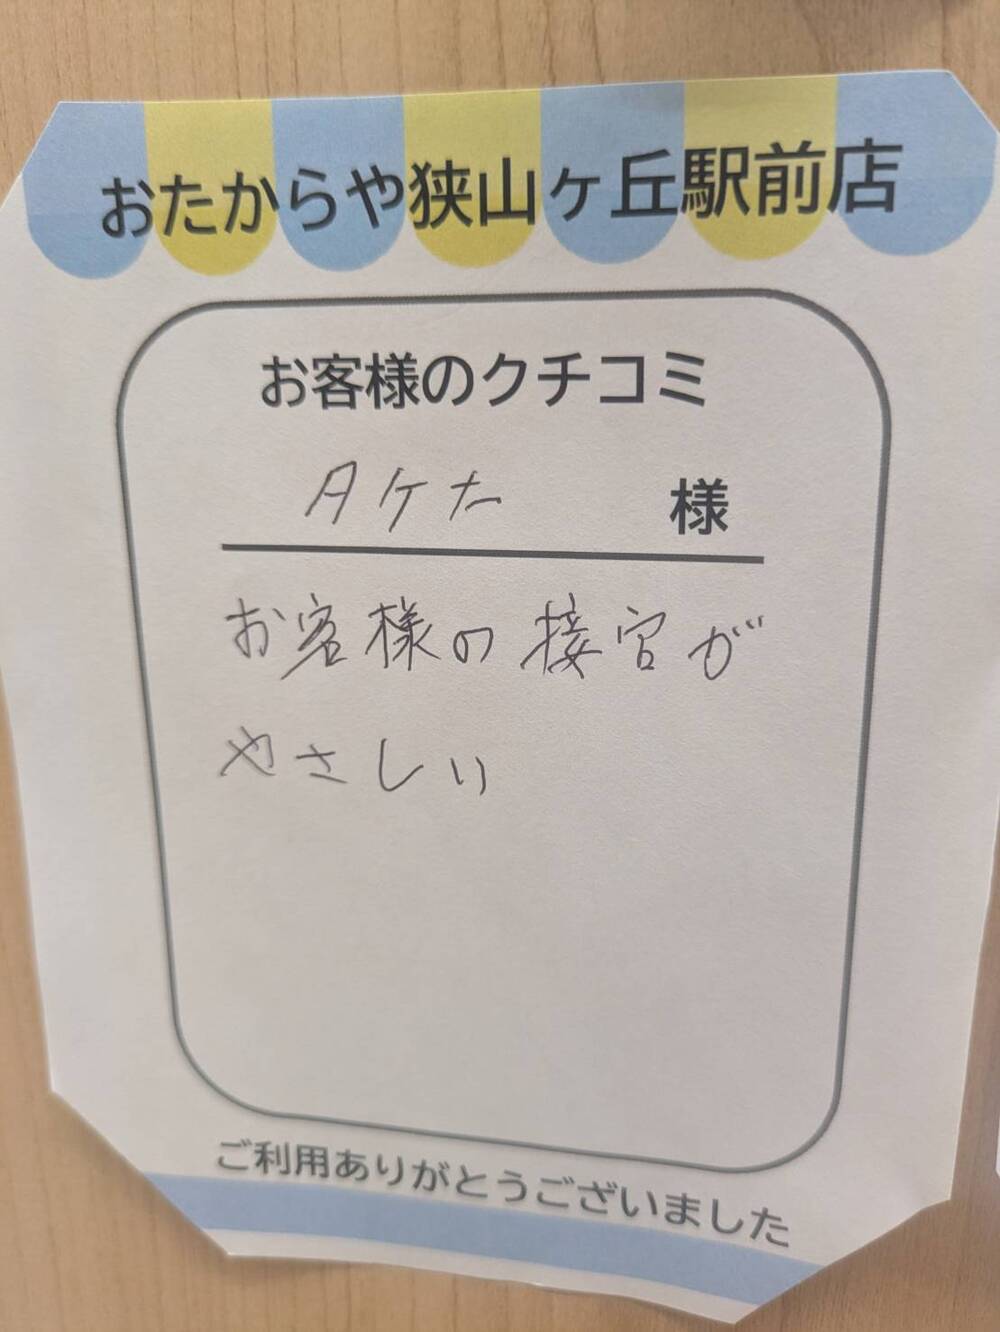 おたからや狭山ヶ丘駅前店
お客様のクチコミ
タケた 様
お客様の接官が
やさしい
ご利用ありがとうございました